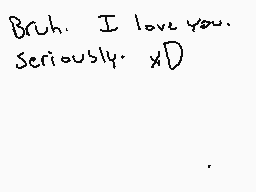 Bruh. I love you.
Seriously. xD